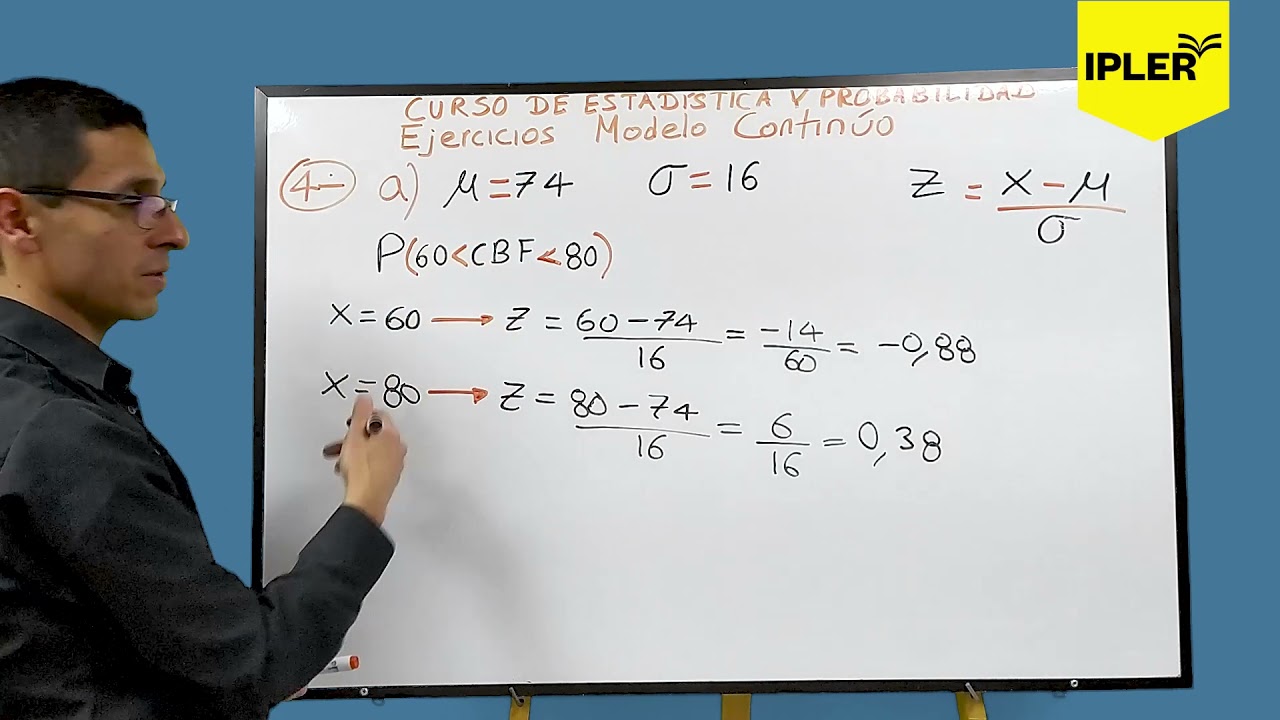 IPLER
CURSO DE ESTADISTICA Y PROBABILIDAD
Ejercicios Modelo Continúo
4- a) μ=74 σ=16 Z = (X-μ)/σ
P(60<CBF<80)
X=60 → Z = (60-74)/16 = -14/60 = -0,88
X=80 → Z = (80-74)/16 = 6/16 = 0,38